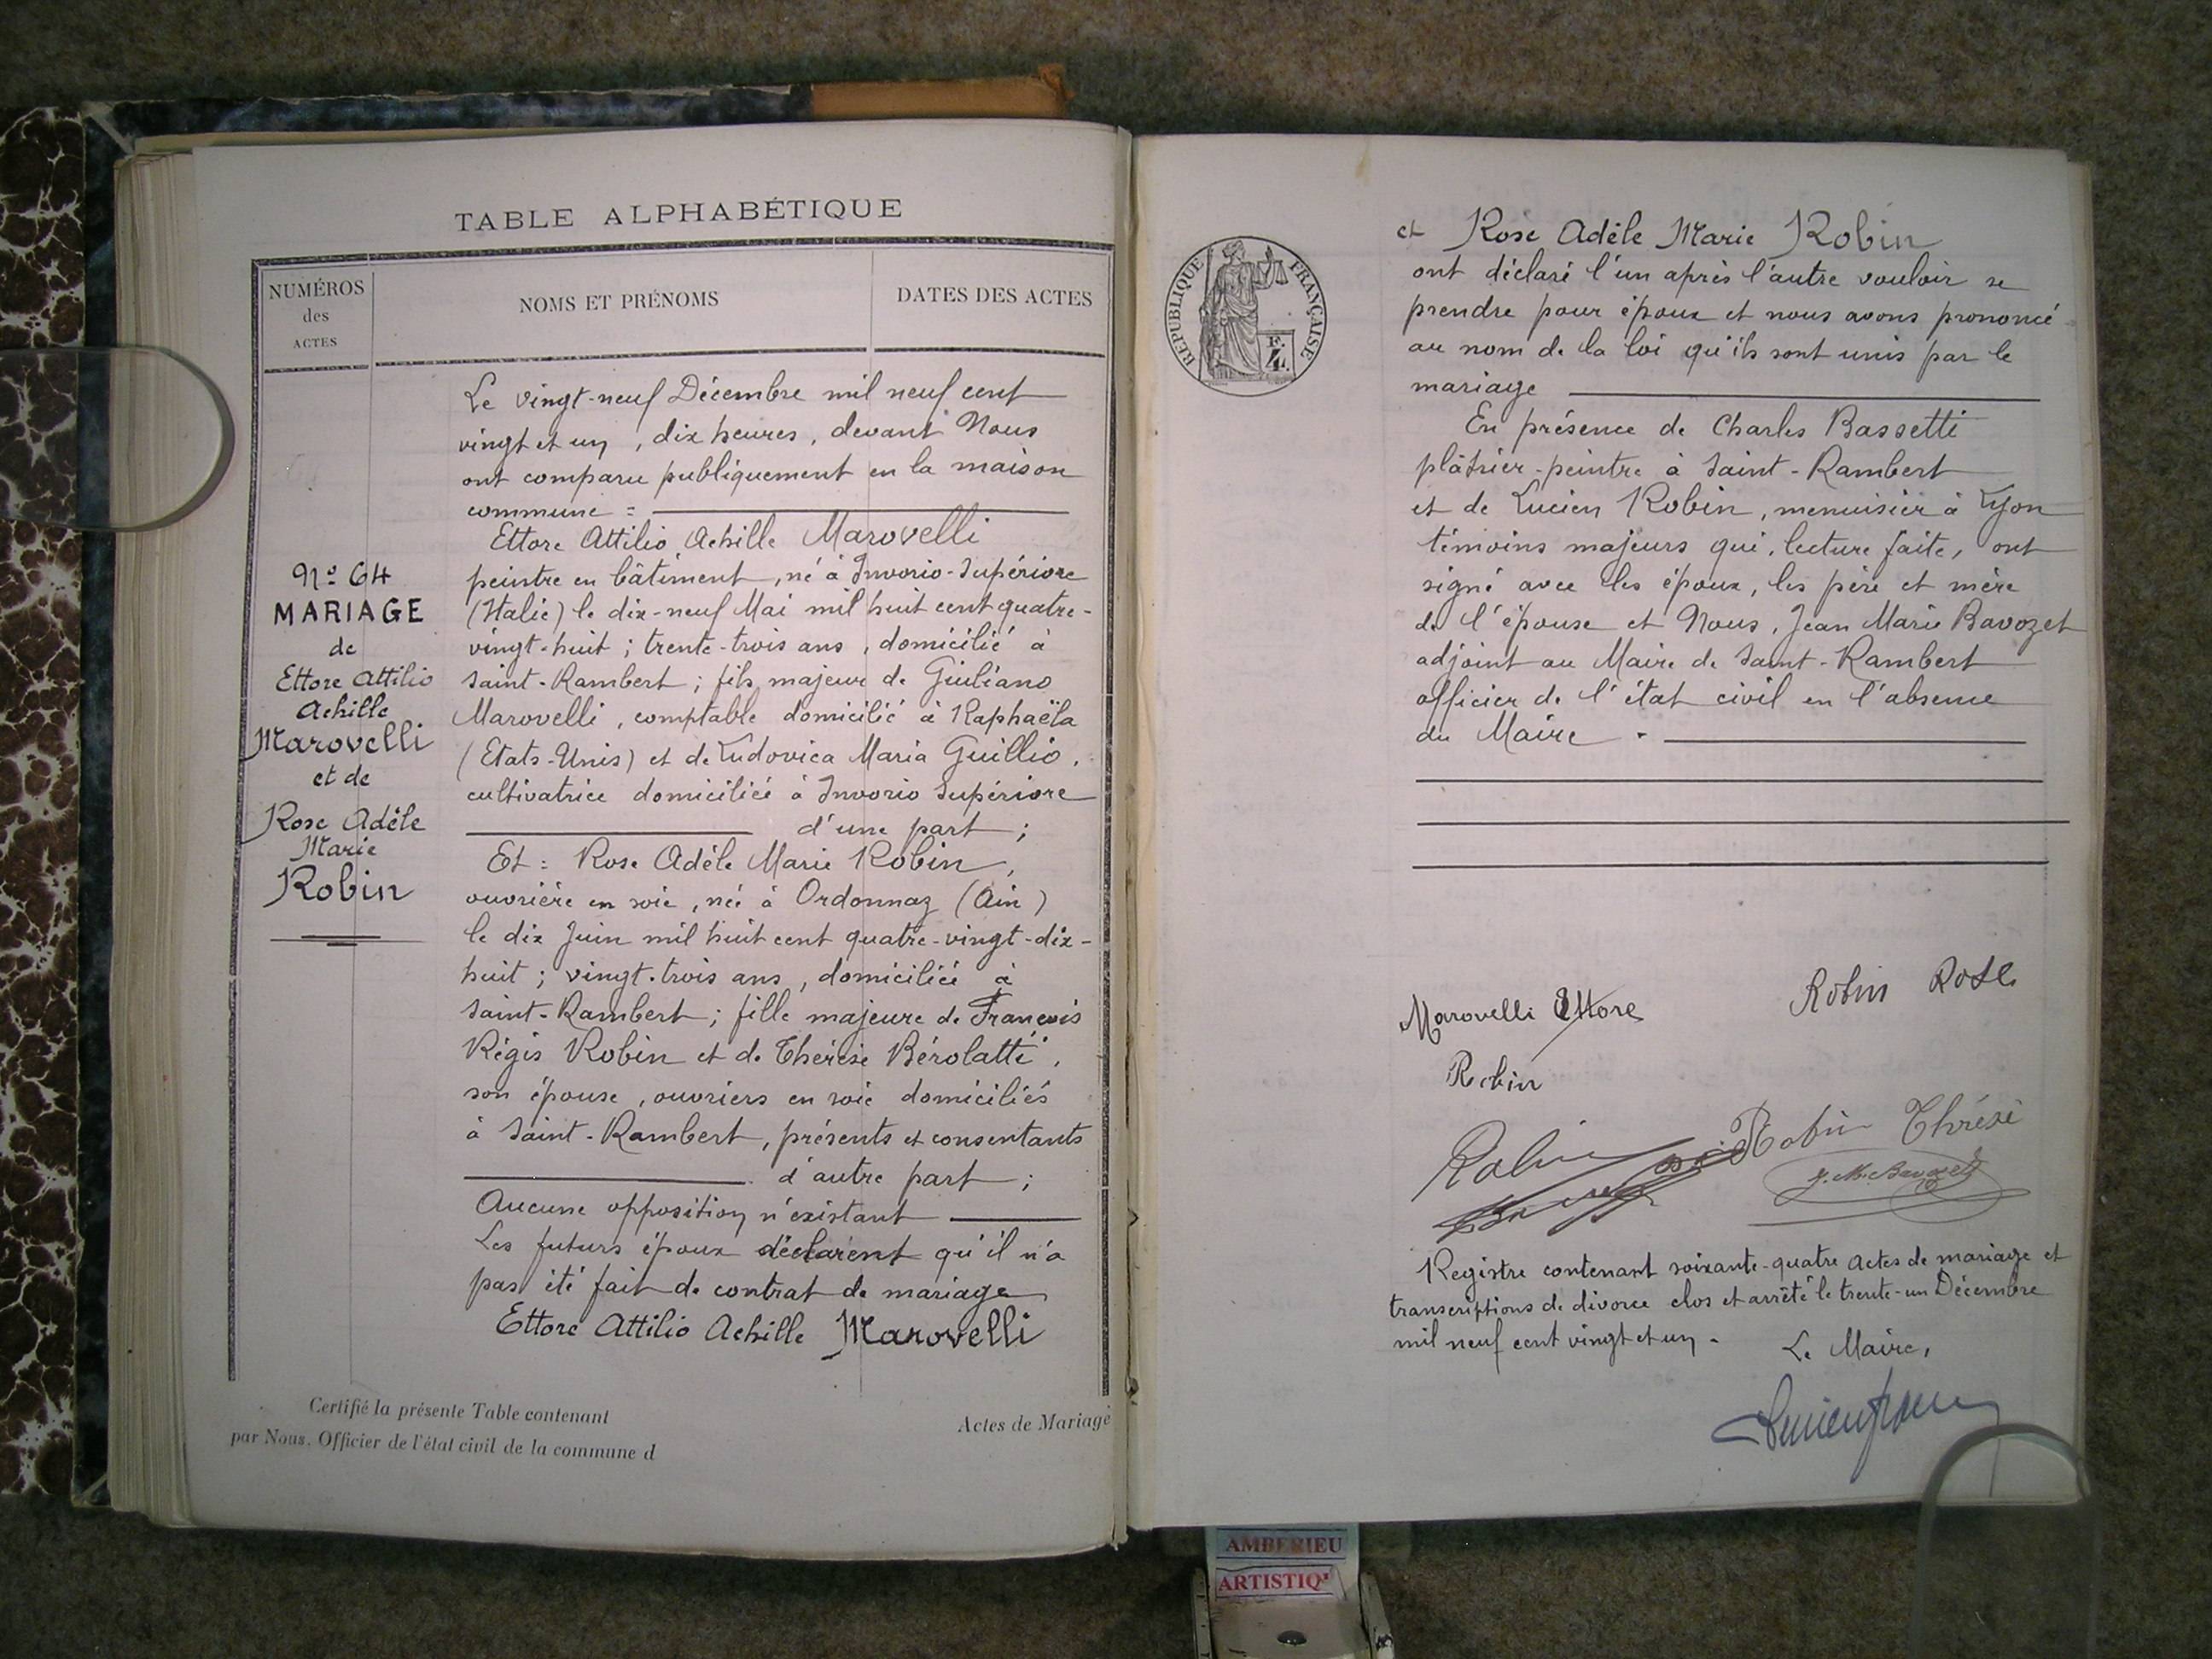 TABLE ALPHABÉTIQUE
NUMÉROS
des
ACTES
NOMS ET PRÉNOMS
DATES DES ACTES
Nº 64
MARIAGE
de
Ettore Attilio
Achille
Marovelli
et de
Rose Adèle
Marie
Robin
Le vingt-neuf Décembre mil neuf cent
vingt et un, dix heures, devant Nous
ont comparu publiquement en la maison
commune =
Ettore Attilio Achille Marovelli
peintre en bâtiment, né à Invorio-Supériore
(Italie) le dix-neuf Mai mil huit cent quatre-
vingt-huit ; trente-trois ans, domicilié à
Saint-Rambert ; fils majeur de Giuliano
Marovelli, comptable domicilié à Raphaëla
(Etats-Unis) et de Ludovica Maria Guillio,
cultivatrice domiciliée à Invorio Supériore
d'une part ;
Et = Rose Adèle Marie Robin,
ouvrière en soie, née à Ordonnaz (Ain)
le dix Juin mil huit cent quatre-vingt-dix-
huit ; vingt-trois ans, domiciliée à
Saint-Rambert ; fille majeure de François
Régis Robin et de Thérèse Bérolatti,
son épouse, ouvriers en soie domiciliés
à Saint-Rambert, présents et consentants
d'autre part ;
Aucune opposition n'existant
Les futurs époux déclarent qu'il n'a
pas été fait de contrat de mariage
Ettore Attilio Achille Marovelli
Certifié la présente Table contenant
Actes de Mariage
par Nous, Officier de l'état civil de la commune d
RÉPUBLIQUE FRANÇAISE
F.
4.
et Rose Adèle Marie Robin
ont déclaré l'un après l'autre vouloir se
prendre pour époux et nous avons prononcé
au nom de la loi qu'ils sont unis par le
mariage
En présence de Charles Bassetti
plâtrier-peintre à Saint-Rambert
et de Lucien Robin, menuisier à Lyon
témoins majeurs qui, lecture faite, ont
signé avec les époux, les père et mère
de l'épouse et Nous, Jean Marie Bavozet
adjoint au Maire de Saint-Rambert
officier de l'état civil en l'absence
du Maire .
Marovelli Ettore
Robin Rose
Robin
Robin
Robin Thrése
J. M. Bavozet
Registre contenant soixante-quatre actes de mariage et
transcriptions de divorce clos et arrêté le trente-un Décembre
mil neuf cent vingt et un.
Le Maire,
AMBERIEU
ARTISTIQ